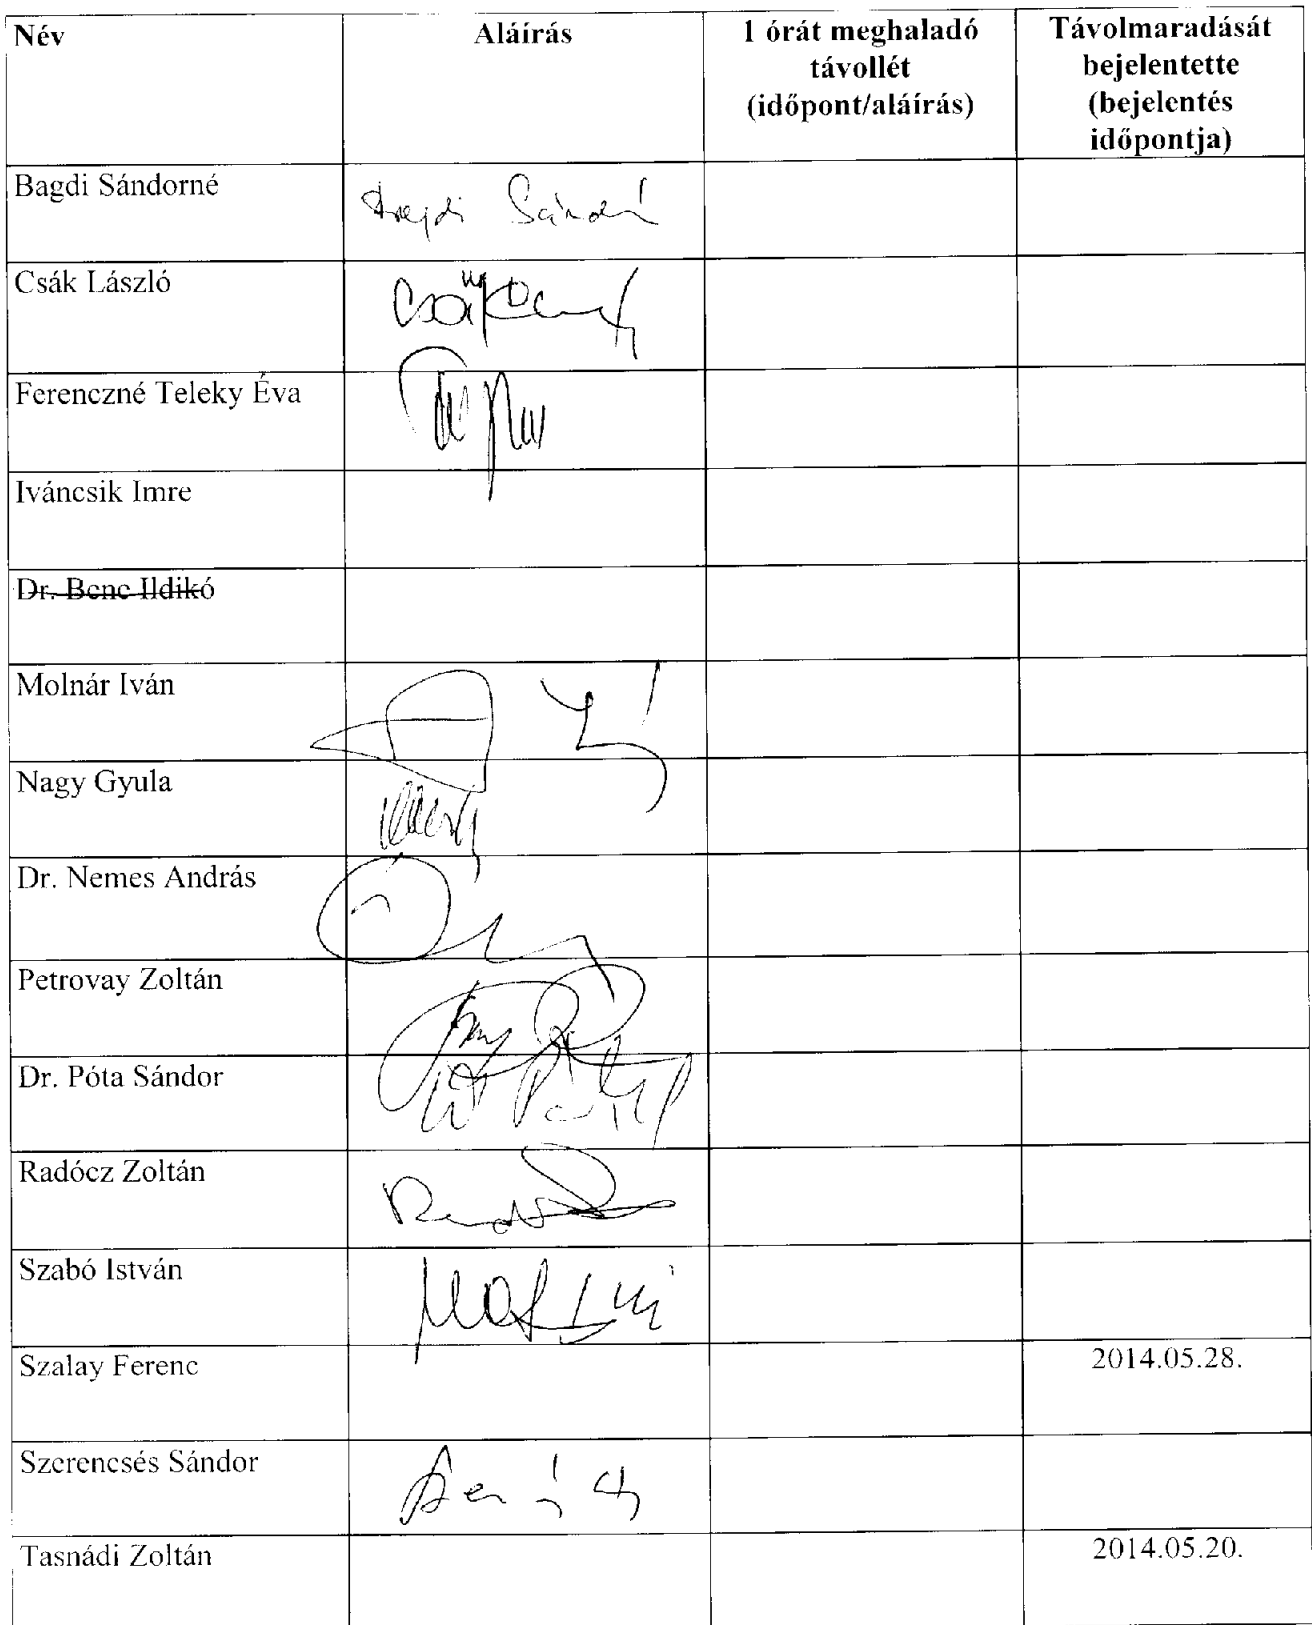 Név Aláírás 1 órát meghaladó Távolmaradását
távollét bejelentette
(időpont/aláírás) (bejelentés
időpontja)
Bagdi Sándorné
Csák László
Ferenczné Teleky Éva
Iváncsik Imre
Dr. Bene Ildikó
Molnár Iván
Nagy Gyula
Dr. Nemes András
Petrovay Zoltán
Dr. Póta Sándor
Radócz Zoltán
Szabó István
Szalay Ferenc 2014.05.28.
Szerencsés Sándor
Tasnádi Zoltán 2014.05.20.